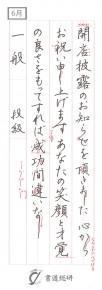 6月
開店披露のお知らせを頂きました 心から
お祝い申し上げます あなたの笑顔と才覚
の良さをもってすれば成功間違いなし
一般 段級
書道総研